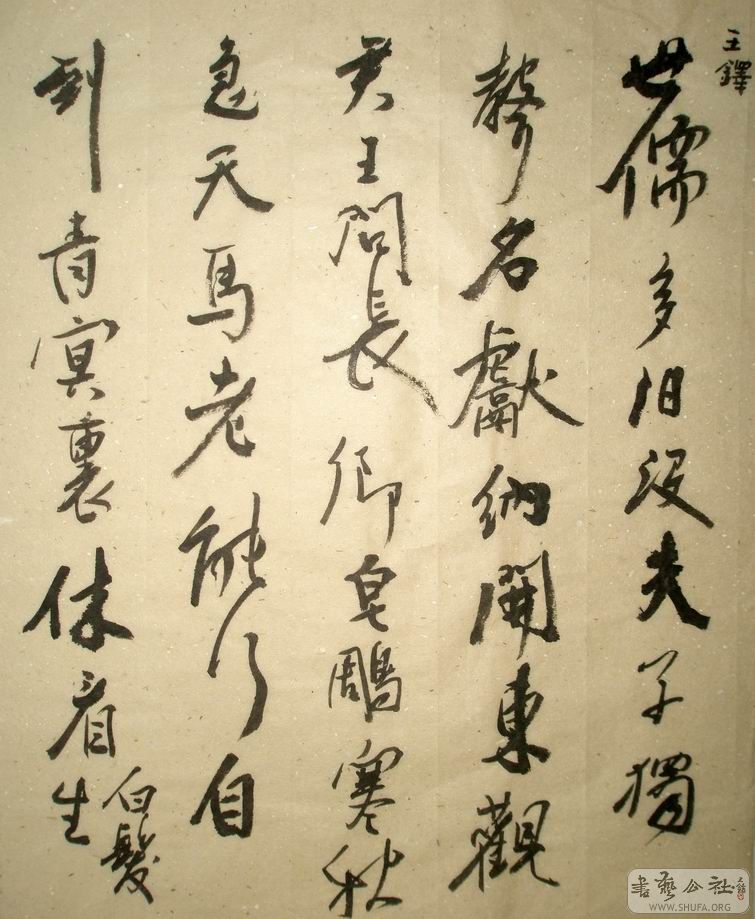 王鐸
世儒多汩没夫子獨
聲名獻納開東觀
君王問長卿皂鵰寒秋
急天馬老能行自
到青冥裏休看白髮生
書藝公社
WWW.SHUFA.ORG